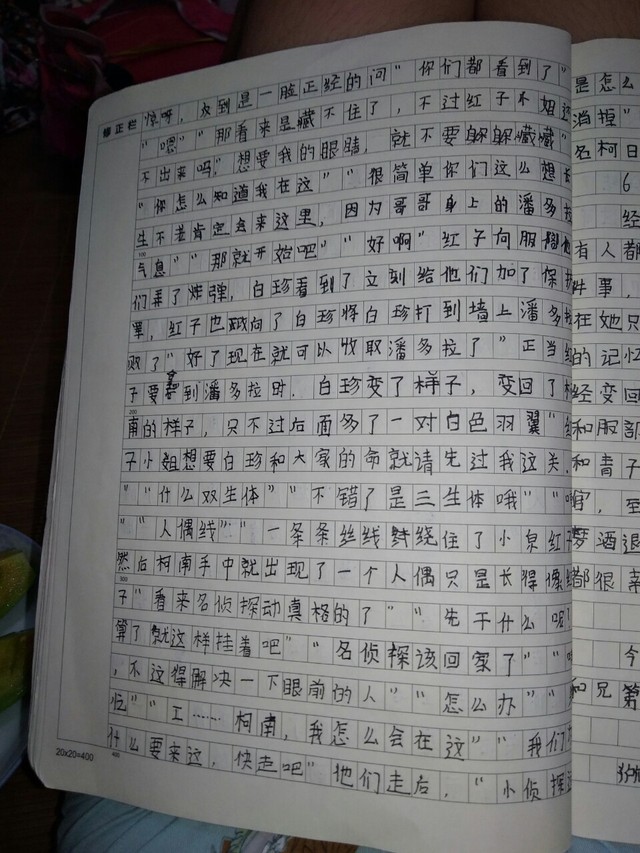 修正栏
惊呀，众到是一脸正经的问“你们都看到了”
“嗯”“那看来是藏不住了，不过红子小姐还
不出来吗”想要我的眼睛，就不要躲躲藏藏”
“你怎么知道我在这”“很简单你们这么想
生不老肯定会来这里，因为哥哥身上的潘多拉
100
气息”“那就开始吧”“好啊”红子向服部他
们弄了炸弹，白珍看到了立刻给他们加了保护
罩，红子也跃向了白珍将白珍打到墙上潘多拉
败了“好了现在就可以收取潘多拉了”正当红
子要拿到潘多拉时，白珍变了样子，变回了柯
200
南的样子，只不过后面多了一对白色羽翼“红
子小姐想要白珍和大家的命就请先过我这关，
“”什么双生体”“不错了是三生体哦”“
“”人偶线”“一条条丝线缠绕住了小泉红子
然后柯南手中就出现了一个人偶只是长得像红
300
子“看来名侦探动真格的了”“先干什么呢
算了就这样挂着吧”“名侦探该回家了”“
，不这得解决一下眼前的人”“怎么办”“
忆”“工……柯南，我怎么会在这”“我们
什么要来这，快走吧”他们走后，“小侦探
400
20x20=400
是怎么
消掉”
名柯日
6
经
有人都
件事，
在她只
的记忆
经变回
和服部
和青子
官，至
梦酒退
都很亲
今
和兄弟